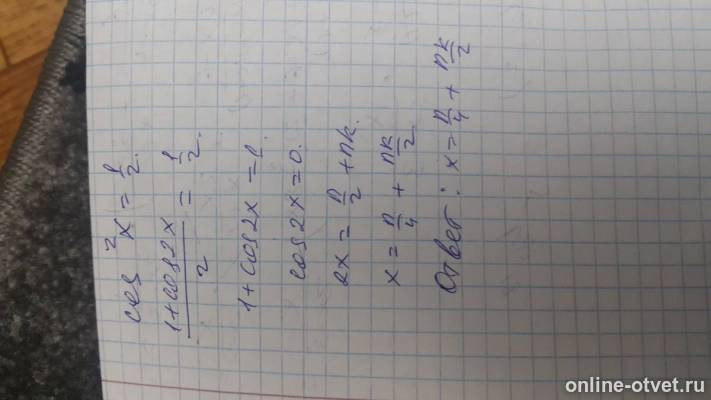 cos²x = 1/2.
(1+cos2x)/2 = 1/2.
1+cos2x = 1.
cos2x = 0.
2x = π/2 + πk.
x = π/4 + πk/2
Ответ: x = π/4 + πk/2
online-otvet.ru